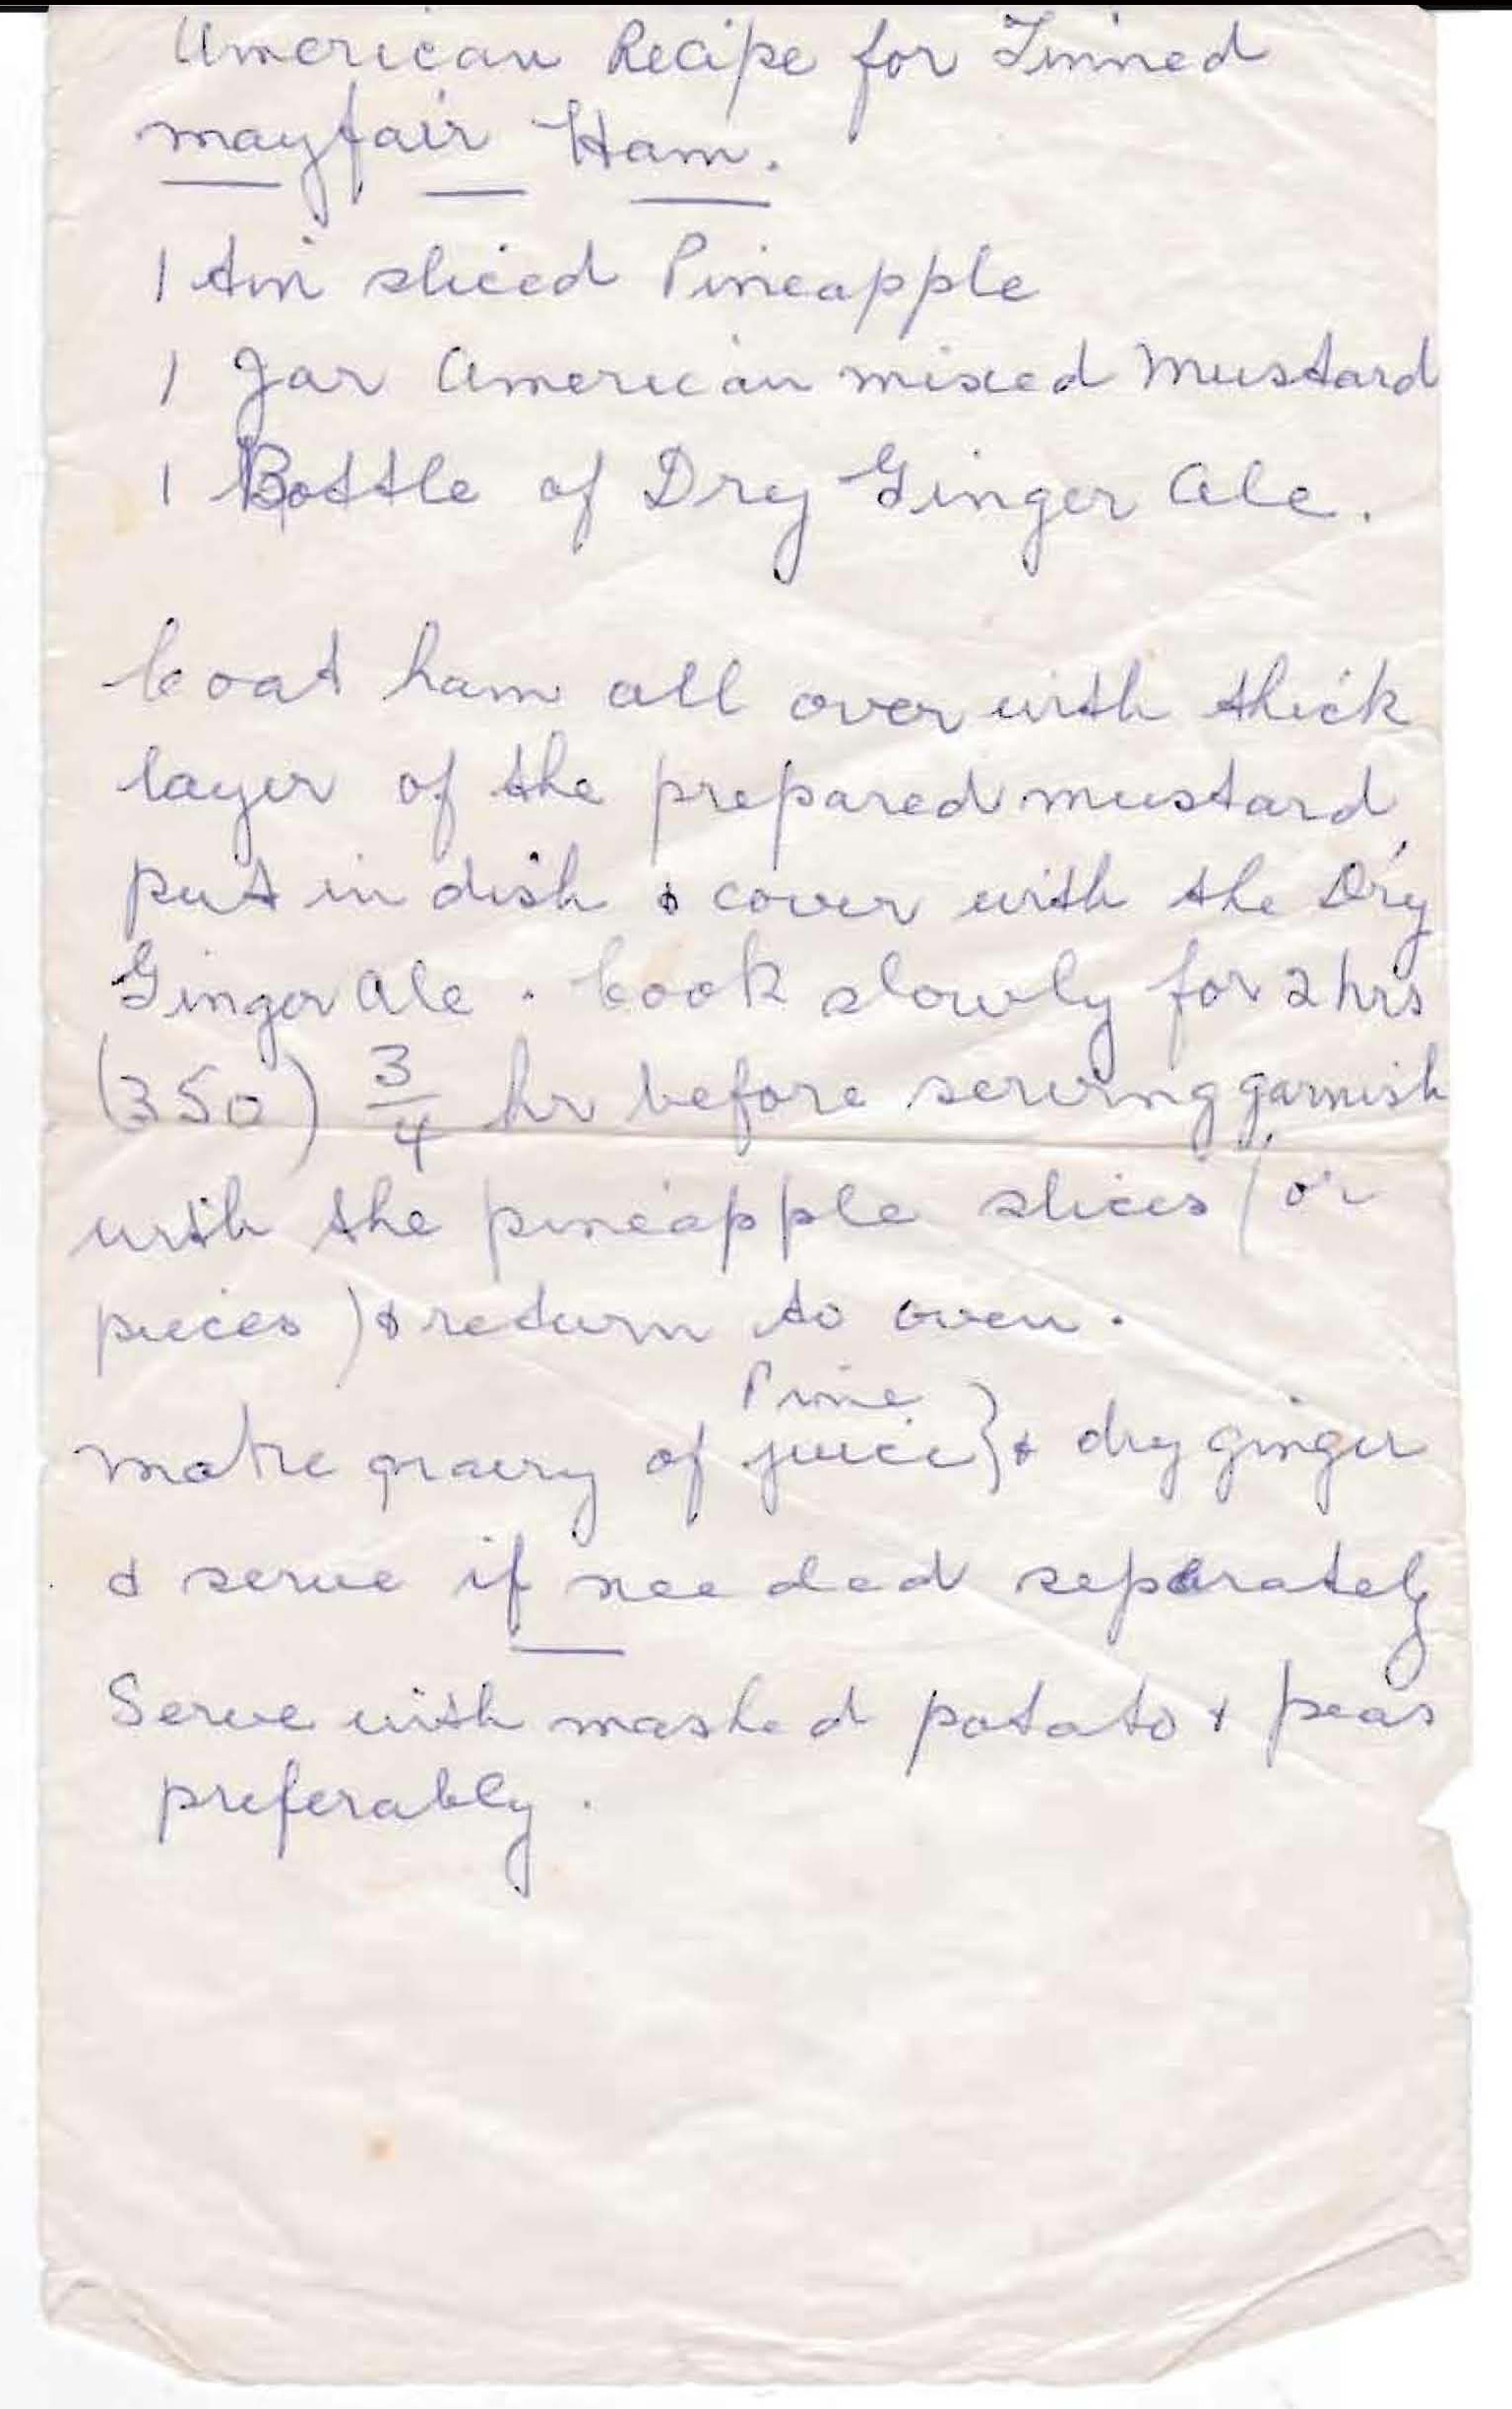 American Recipe for Tinned
Mayfair Ham.
1 tin sliced Pineapple
1 Jar American mixed Mustard
1 Bottle of Dry Ginger Ale.
Coat ham all over with thick
layer of the prepared mustard,
put in dish & cover with the Dry
Ginger Ale. Cook slowly for 2 hrs
(350) 3/4 hr before serving garnish
with the pineapple slices (or
pieces) & return to oven.
Pine
make gravy of juice} & dry ginger
& serve if needed separately
Serve with mashed potato & peas
preferably.